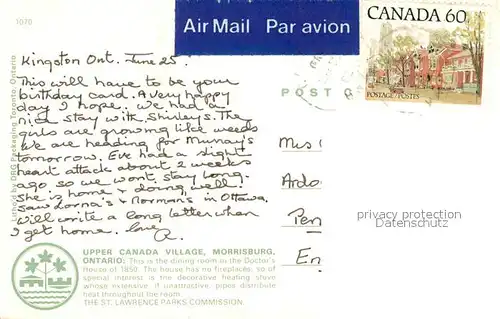 1078
Air Mail Par avion
CANADA 60
POSTAGE/POSTES
Kingston Ont. June 25.
This will have to be your
birthday card. A very happy
day I hope. We had a
nice stay with Shirley S. The
girls are growing like weeds
We are heading for Murray's
tomorrow. Eve had a slight
heart attack about 2 weeks
ago, so we wont stay long.
She is home & doing well.
Saw Lorna's & Norman's in Ottawa.
Will write a long letter when
I get home. Love
POST C
Mrs
Ardo
Pen
En
privacy protection
Datenschutz
Litho'd by DRG Packaging Toronto, Ontario
UPPER CANADA VILLAGE, MORRISBURG,
ONTARIO: This is the dining room in the Doctor's
House of 1850. The house has no fireplaces, so of
special interest is the decorative heating stove
whose extensive, if unattractive, pipes distribute
heat throughout the room.
THE ST. LAWRENCE PARKS COMMISSION.